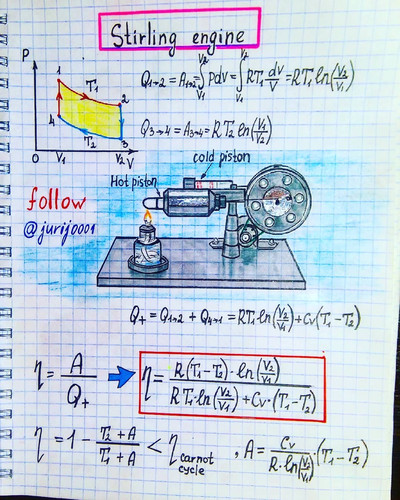 Stirling engine
P
1
T₁
2
4
T₂
3
0
V₁
V₂
V
Q₁→₂ = A₁→₂ = ∫_{V₁}^{V₂} Pdv = ∫_{V₁}^{V₂} RT₁ dv/V = RT₁ ln(V₂/V₁)
Q₃→₄ = A₃→₄ = RT₂ ln(V₁/V₂)
cold piston
Hot piston
follow
@jurij0001
Q₊ = Q₁→₂ + Q₄→₁ = RT₁ ln(V₂/V₁) + Cv(T₁ - T₂)
η = A/Q₊
η = R(T₁-T₂)·ln(V₂/V₁) / RT₁·ln(V₂/V₁) + Cv·(T₁-T₂)
η = 1 - T₂+A/T₁+A < η carnot cycle , A = Cv/R·ln(V₂/V₁) · (T₁-T₂)